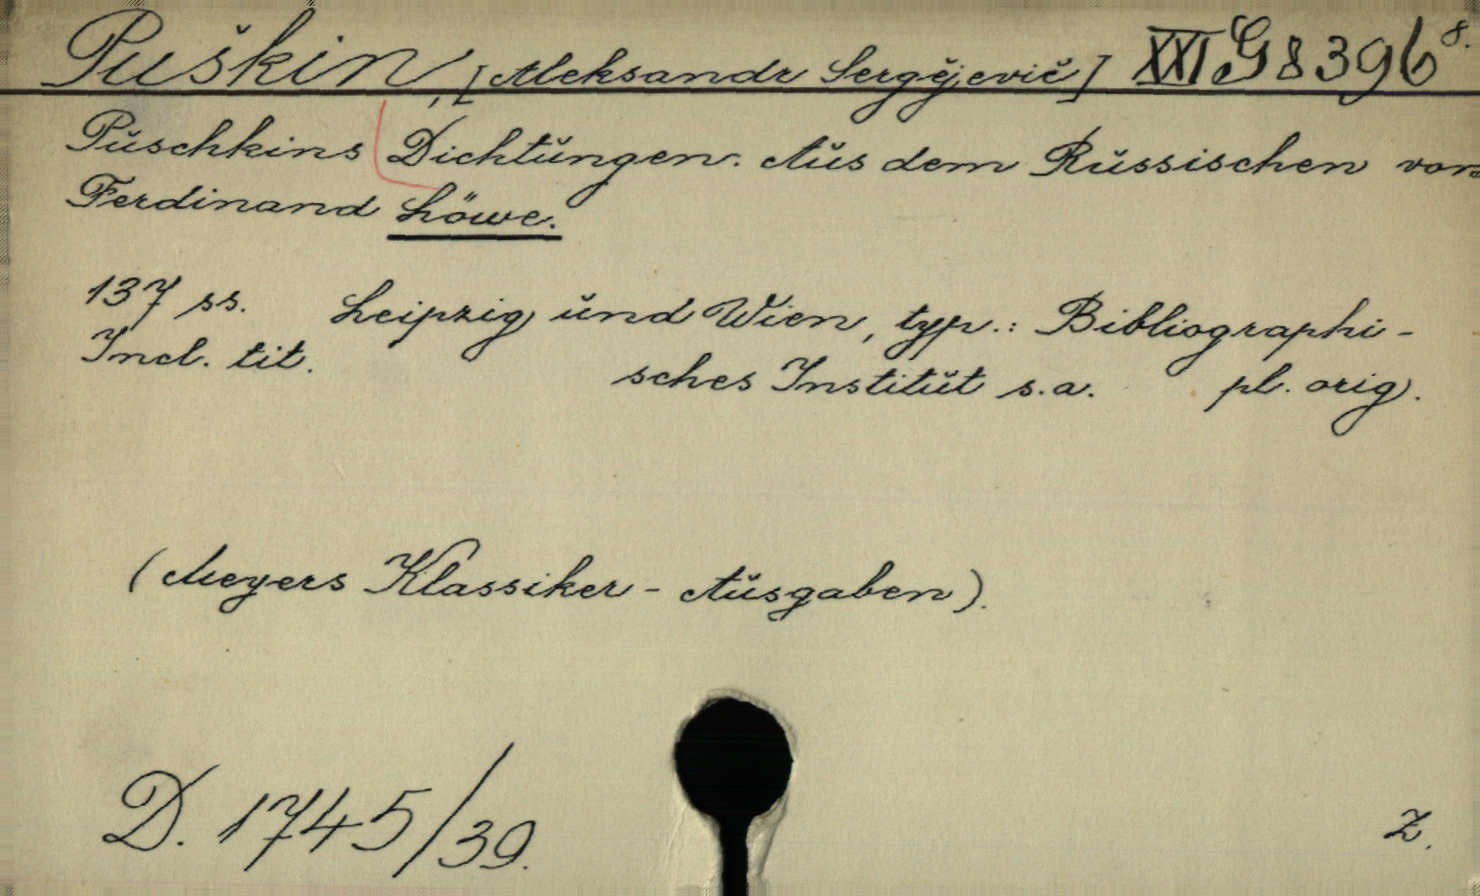 Puškin, [Aleksandr Sergějevič] XXI G 8396 8.
Puschkins Dichtungen. Aus dem Russischen von
Ferdinand Löwe.
137 ss. Leipzig und Wien, typ.: Bibliographi-
Incl. tit. sches Institut s.a. pl. orig.
(Meyers Klassiker - Ausgaben).
D. 1745/39.
Z.